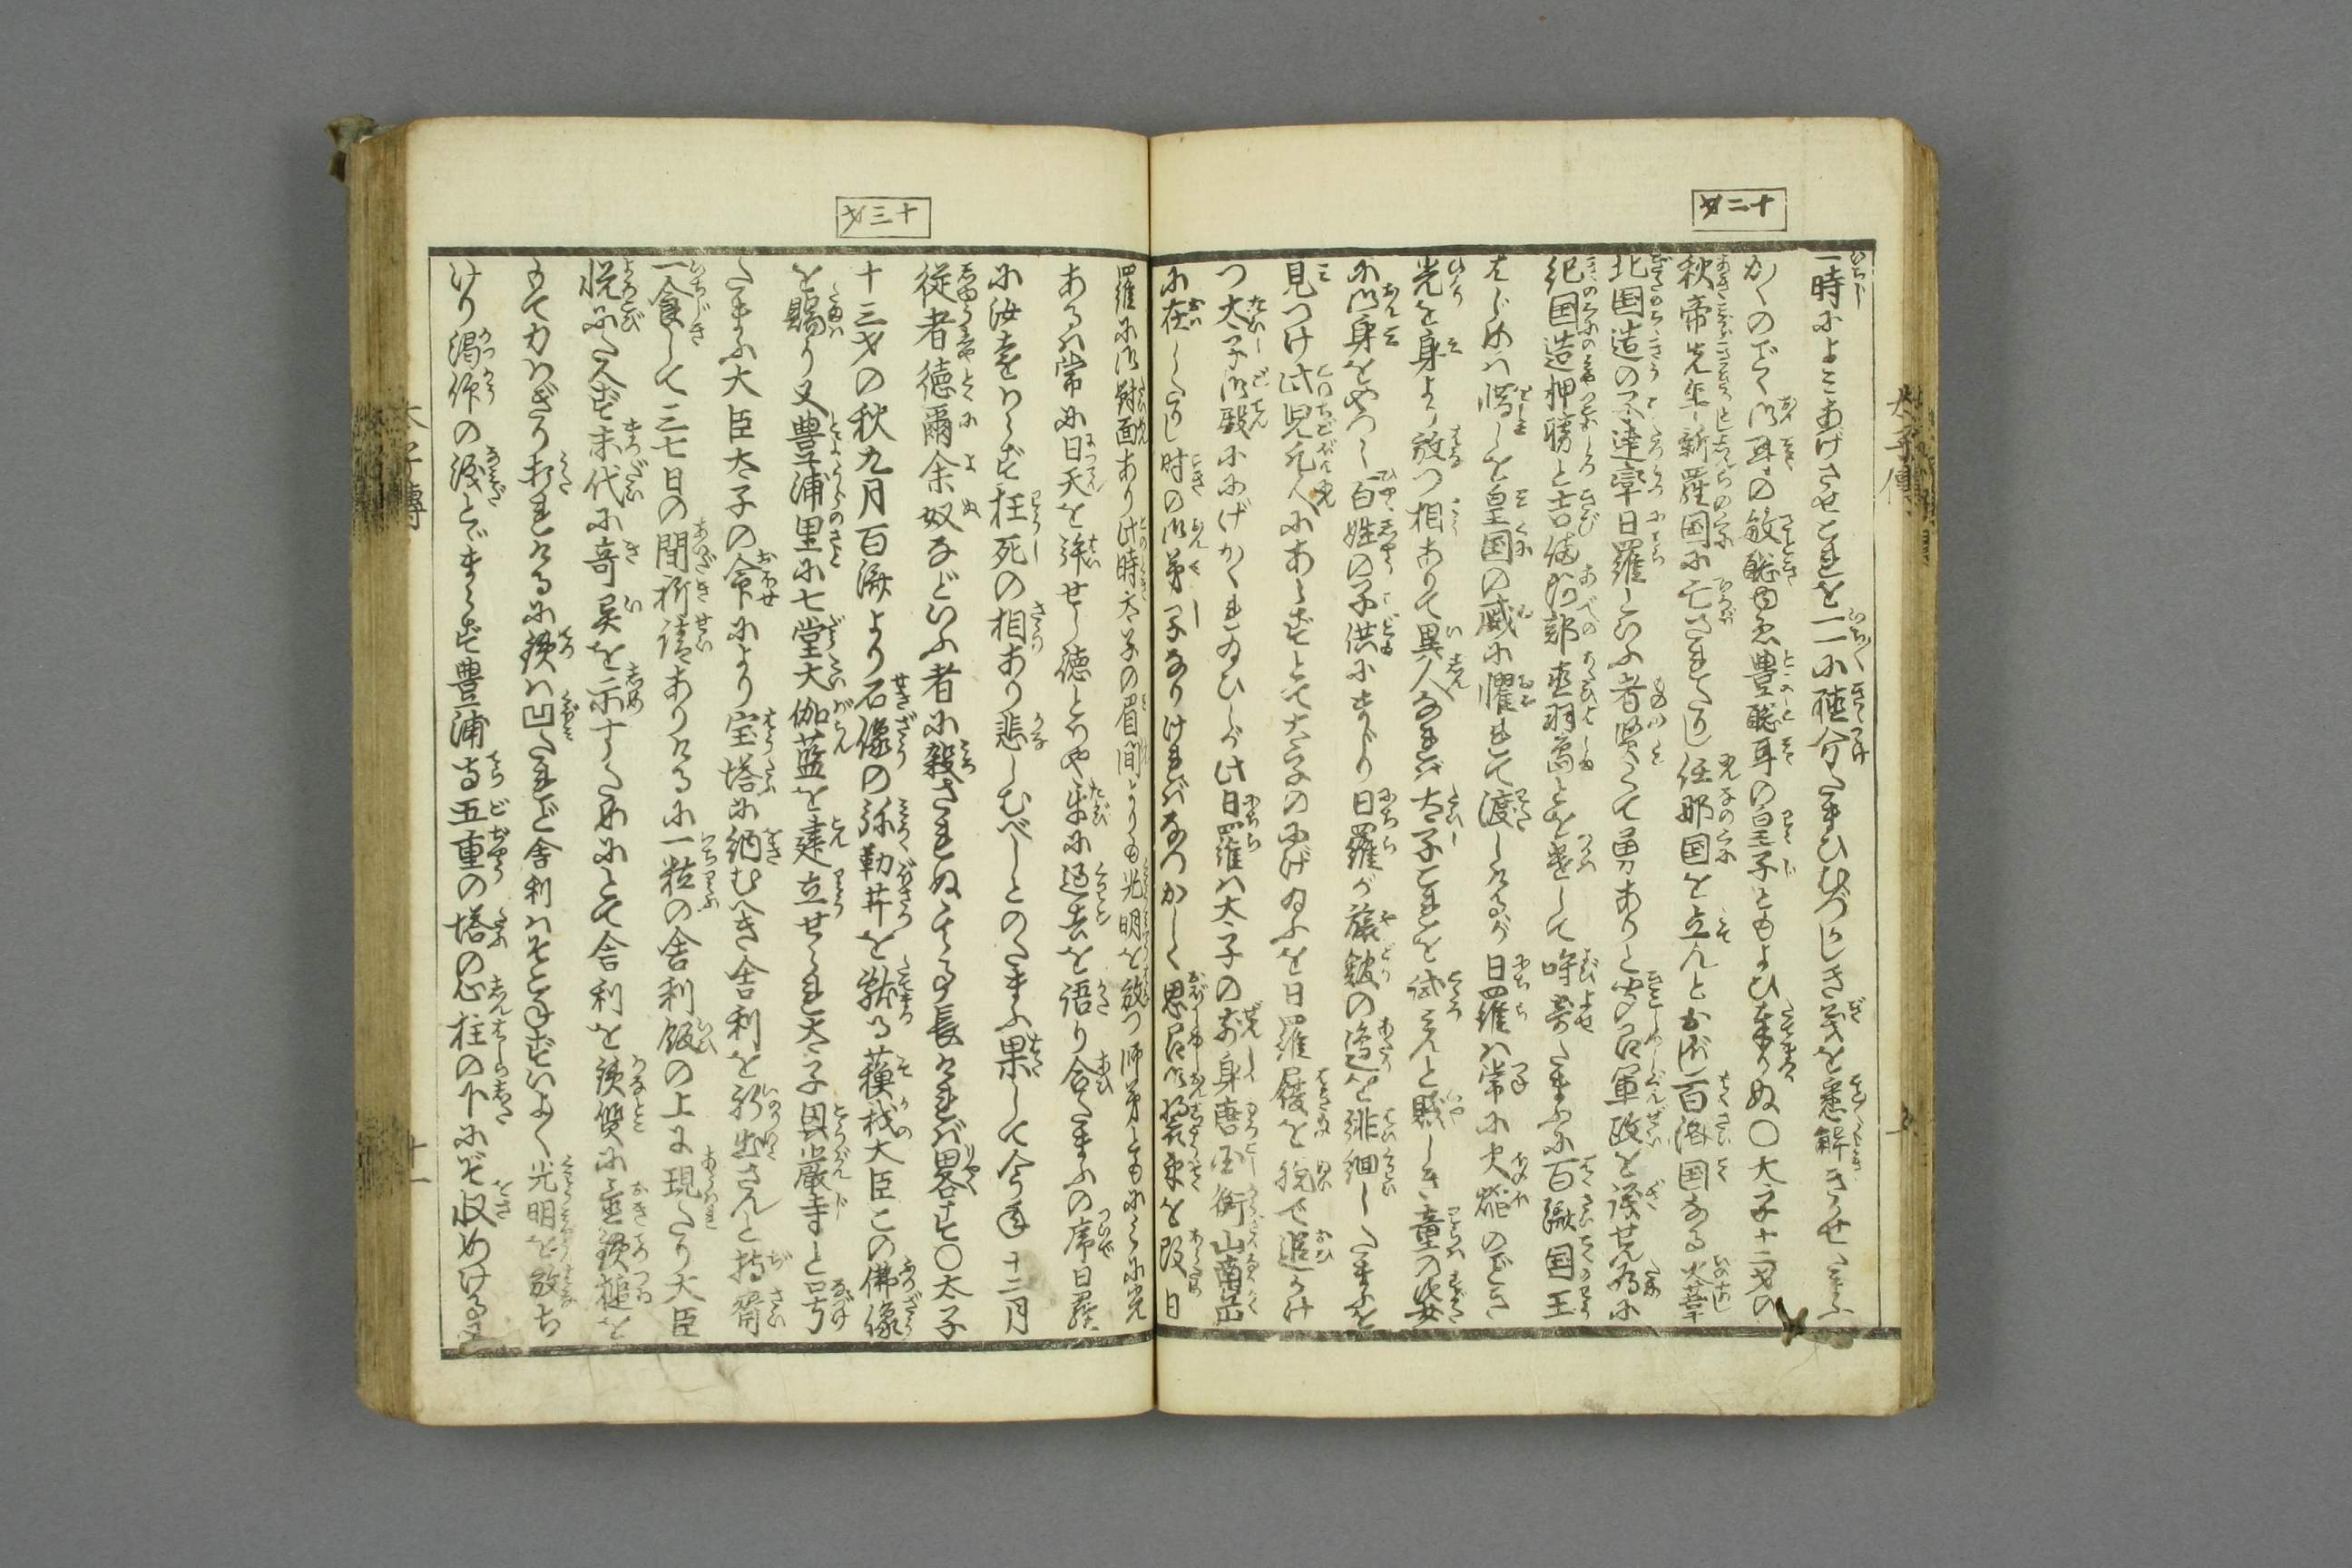 十二才
一時によみあげさせこれを一一に種分たまひむづかしき義を悉解きかせたまふ
かくのごとく御耳の敏聡ゆゑ豊聡耳の皇子ともよび奉りぬ〇太子十二才の
秋帝先年新羅国に亡されたりし任那国を立んとおぼし百済国なる火葦
北国造の子達率日羅といふ者賢くて勇ありと聞召軍政を議せん為に
紀国造押勝と吉備海部直羽嶋とを遣して呼寄たまふに百済国王
はじめは惜しを皇国の威に懼れて渡しけるが日羅は常に火焔のごとき
光を身より放つ相ありて異人なれば太子これを試みんと賤しき童の姿
に御身をやつし百姓の子供にまじり日羅が旅館の邊を徘徊したまふを
見つけ此児凡人にあらずとて太子のにげ給ふを日羅履を脱で追かけ
つ太子御殿ににげかくれ給ひしが此日羅は太子の前身唐国衡山南岳
に在したりし時の御弟子なりければなつかしく思召御装束を改日
太子傳
十三才
羅に御対面あり此時太子の眉間よりも光明を放つ師弟ともにかく光
あるは常に日天を拝せし徳とかや牛に過去を語り合たまふの席日羅
に汝遠からず枉死の相あり悲しむべしとのたまふ果して今年十二月
従者徳爾余奴などいふ者に殺されぬ其事長ければ畧す〇太子
十三才の秋九月百済より石像の弥勒菩薩を献る蘇我大臣この佛像
を賜り又豊浦里に七堂大伽藍を建立せられ太子因厳寺と号
たまふ大臣太子の命により宝塔に納むべき舎利を祈出さんと持齋
一食して三七日の間祈請ありけるに一粒の舎利飯の上に現たり大臣
悦にたえず末代に奇異を示すためにとて舎利を鉄質に置鉄槌を
もて力かぎり打れけるに鉄は凹たれど舎利はそこねずいよ〱光明を放ち
けり渇仰の涙とどまらず豊浦寺五重の塔の心柱の下にぞ収めける
太子傳
十一